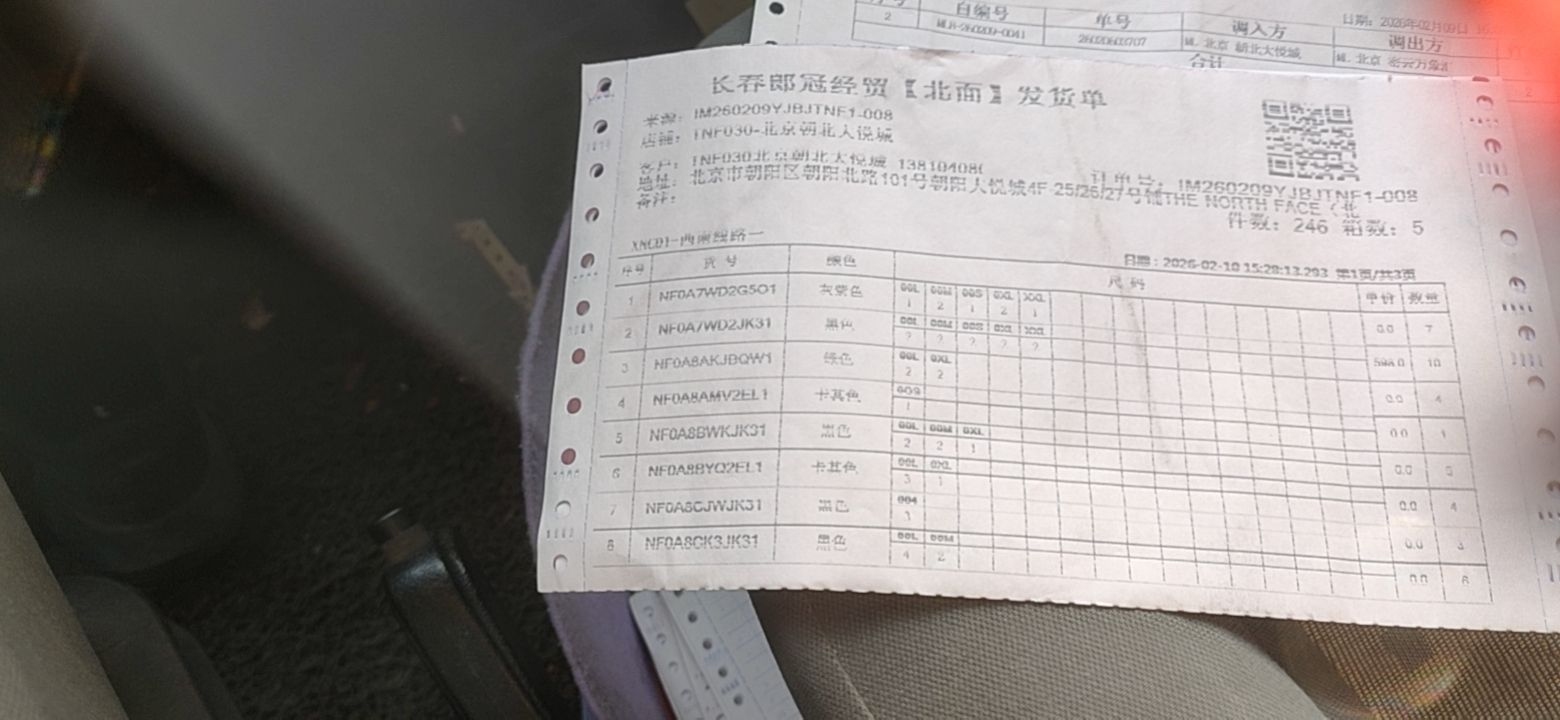 自编号 单号 调入方 调出方
2 ML8-260209-0041 26020603707 ML 北京 朝北大悦城 ML 北京 密云万象汇
合计
日期：2026年02月09日
长春郎冠经贸【北面】发货单
来源：IM260209YJBJTNF1-008
店铺：TNF030-北京朝北大悦城
客户：TNF030北京朝北大悦城 138104080
订单号：IM260209YJBJTNF1-008
地址：北京市朝阳区朝阳北路101号朝阳大悦城4F-25/26/27号铺THE NORTH FACE（北
备注：
件数：246 箱数：5
XNC01-西南线路一
日期：2026-02-10 15:28:13.293 第1页/共3页
序号 货号 颜色 尺码 单价 数量
1 NF0A7WD2G5O1 灰紫色 00L 00M 00S 0XL XXL 0.0 7
1 2 1 2 1
2 NF0A7WD2JK31 黑色 00L 00M 00S 0XL XXL 598.0 10
2 2 2 2 2
3 NF0A8AKJBQW1 绿色 00L 0XL 0.0 4
2 2
4 NF0A8AMV2EL1 卡其色 00S 0.0 1
1
5 NF0A8BWKJK31 黑色 00L 00M 0XL 0.0 5
2 2 1
6 NF0A8BYQ2EL1 卡其色 00L 0XL 0.0 4
3 1
7 NF0A8CJWJK31 黑色 004 0.0 3
3
8 NF0A8CK3JK31 黑色 00L 00M 0.0 6
4 2